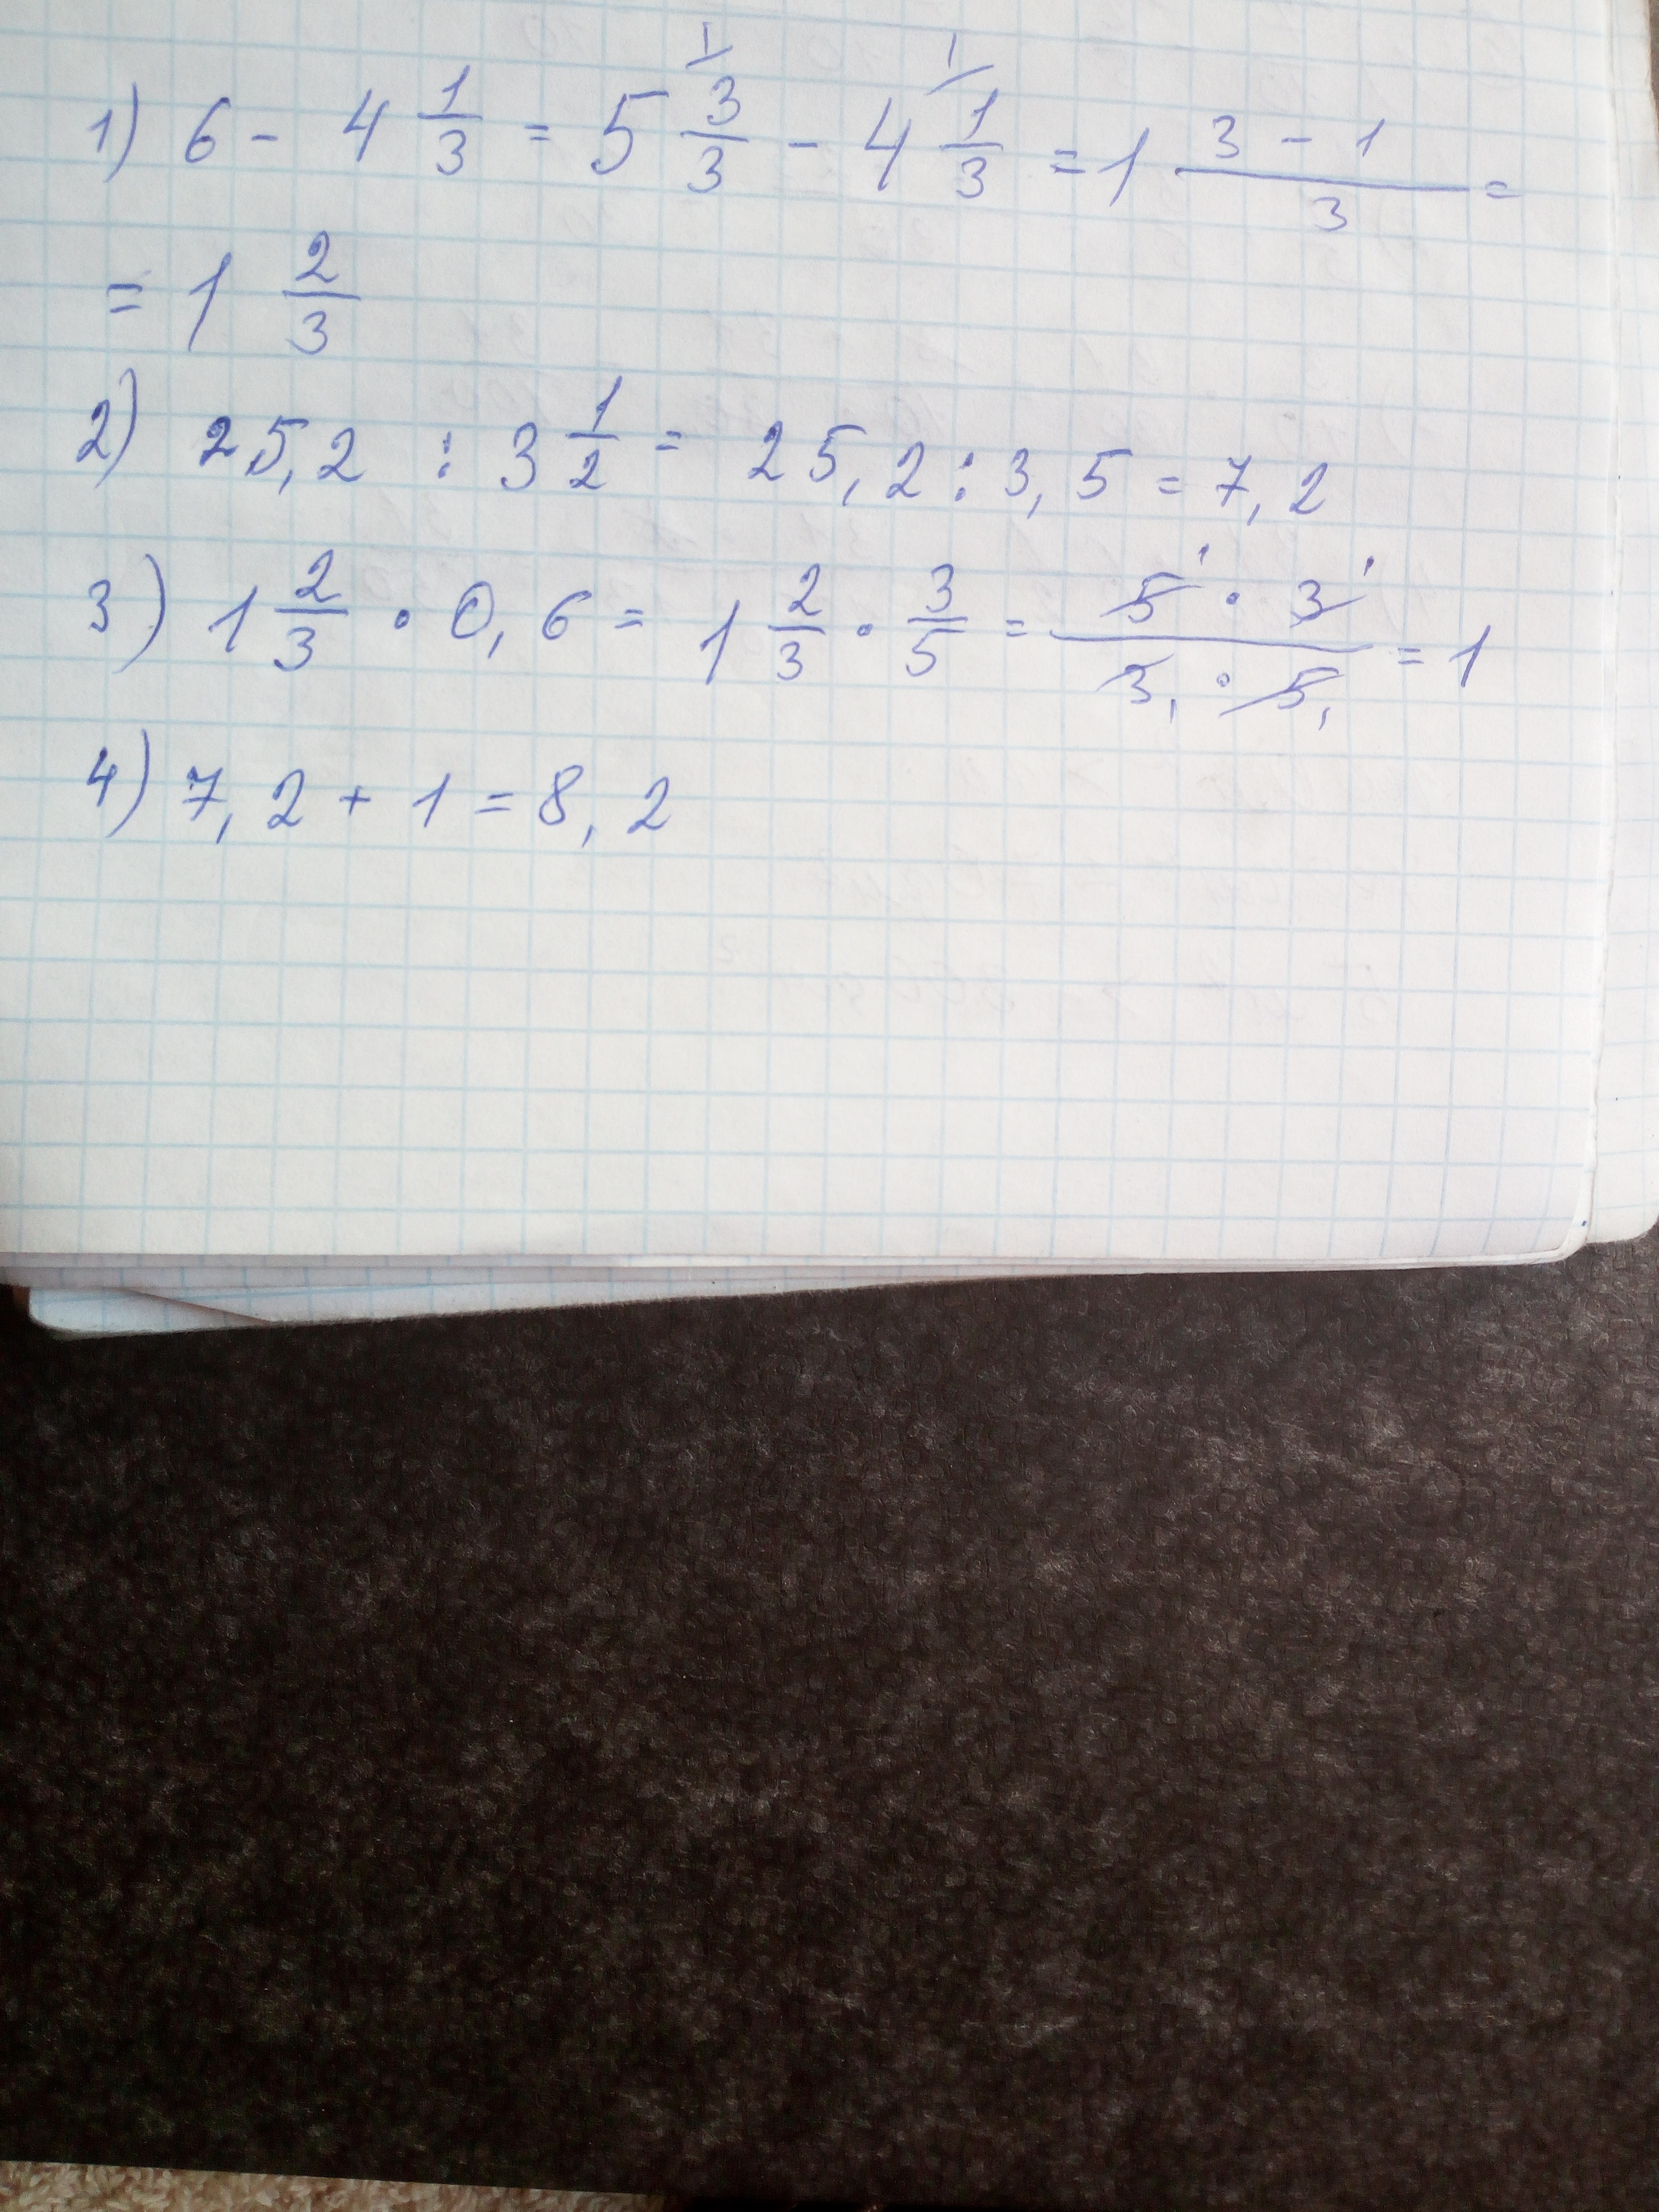 1) 6 - 4 1/3 = 5 3/3 - 4 1/3 = 1 (3 - 1)/3 =
= 1 2/3
2) 25,2 : 3 1/2 = 25,2 : 3,5 = 7,2
3) 1 2/3 · 0,6 = 1 2/3 · 3/5 = (5 · 3)/(3 · 5) = 1
4) 7,2 + 1 = 8,2